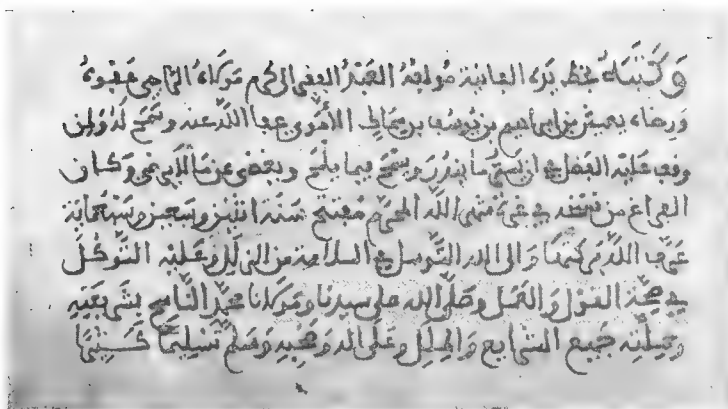 وكتبه بخط يده الفانية مؤلفه العبد الفقير إلى كرم مولاه الراجي عفوه
ورضاه يعيش بن إبراهيم بن يوسف بن سماك الأموي عفا الله عنه وسمح له ولمن
وقف عليه الفضل في أن يستر ما يندر ويسمح فيما يلمح ويغضي عن ما لا يرضي وكان
الفراغ من نسخه في غرة شهر الله المحرم مفتتح سنة اثنين وسبعين وسبعمائة
عرف الله بركتها وإلى الله التوسل في السلامة من الزلل وعليه التوكل
في صحة القول والعمل وصلى الله على سيدنا ومولانا محمد الناسخ بشريعته
وملته جميع الشرايع والملل وعلى آله وصحبه وسلم تسليما كثيرا